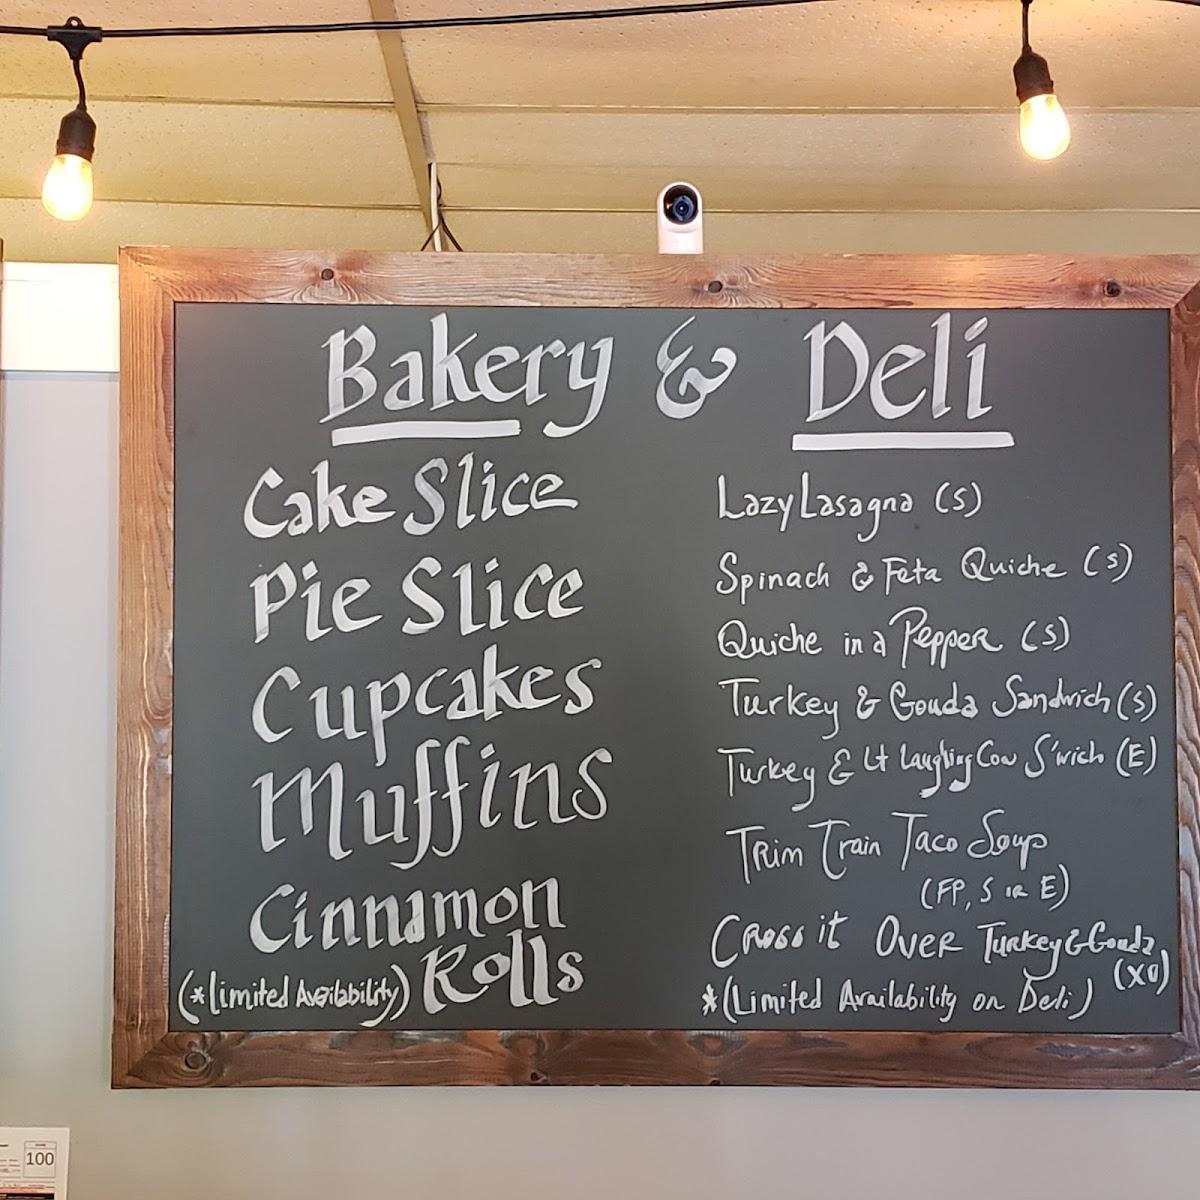 Bakery & Deli
Cake Slice
Pie Slice
Cupcakes
Muffins
Cinnamon
Rolls
(*Limited Availability)
Lazy Lasagna (S)
Spinach & Feta Quiche (S)
Quiche in a Pepper (S)
Turkey & Gouda Sandwich (S)
Turkey & Lt Laughing Cow S'wich (E)
Trim Train Taco Soup
(FP, S or E)
Cross it Over Turkey & Gouda
(XO)
*(Limited Availability on Deli)
100